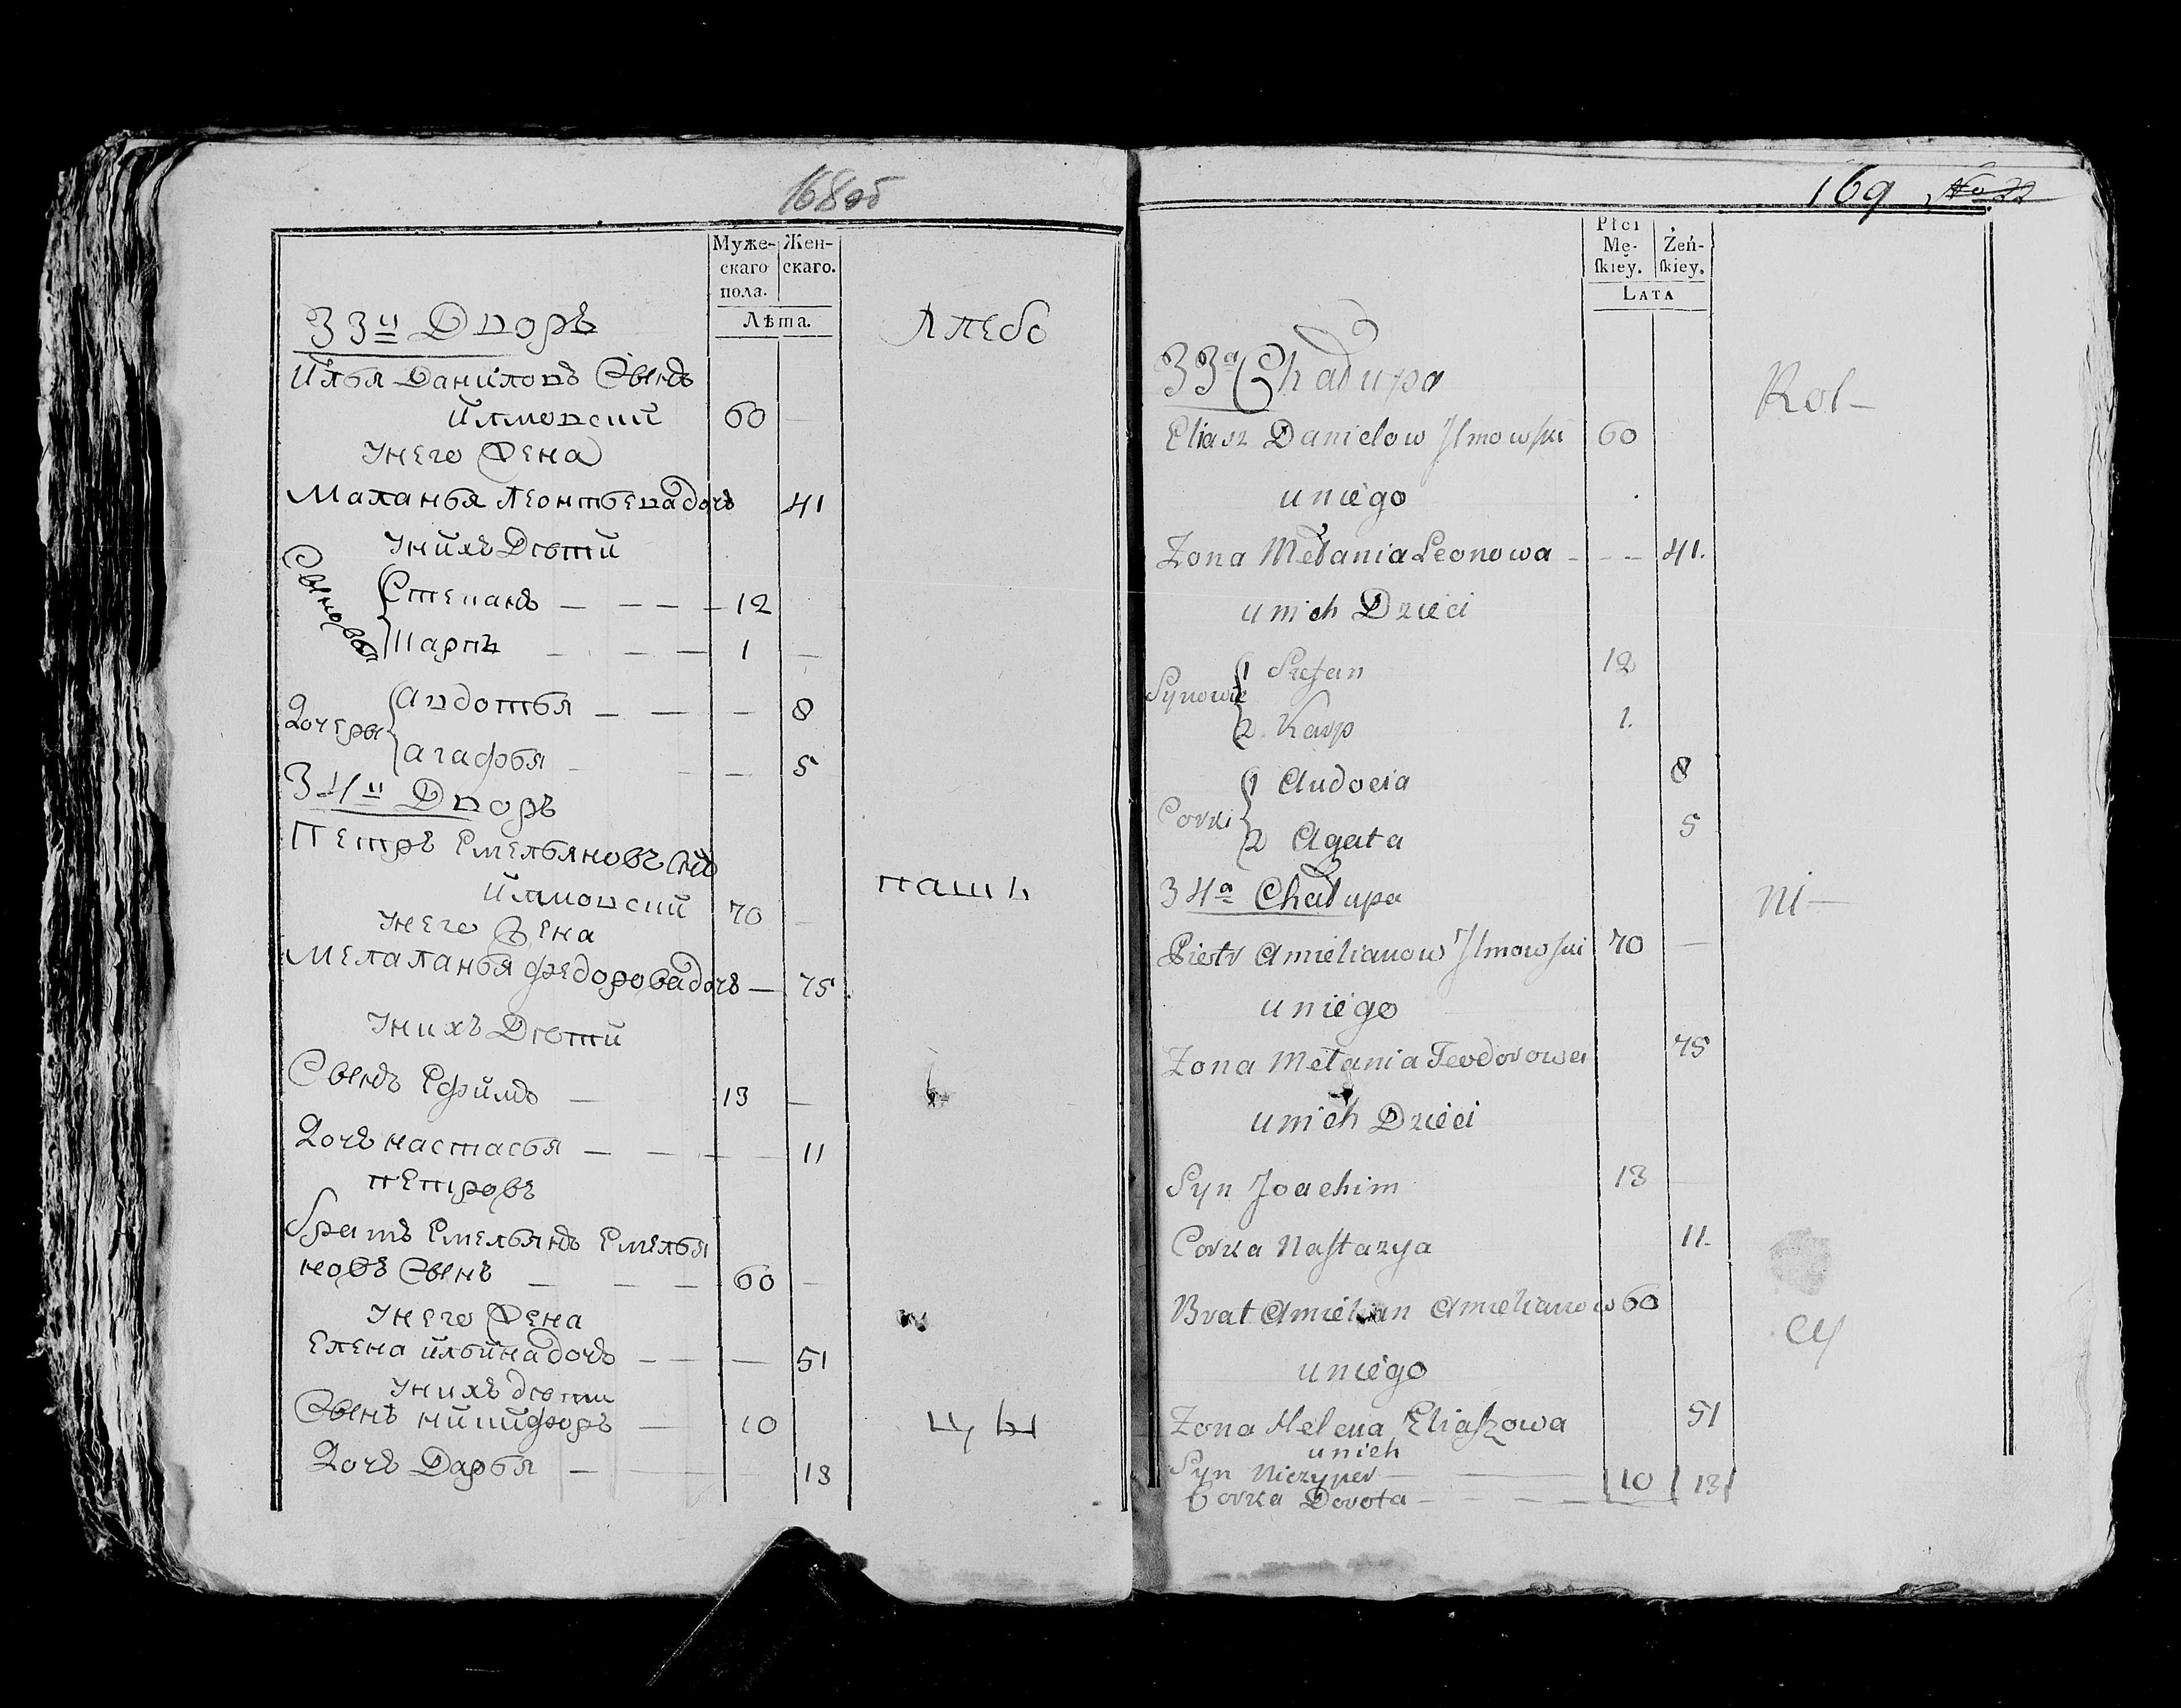 168об
Муже-
скаго
пола.
Жен-
скаго.
Лѣта.
33й Дворъ
Хлебо
Илья Даниловъ Сынъ
Илмовский 60
Унего Жена
Маланья Леонтьева дочь 41
Унихъ Дѣти
Сыновья
Степанъ 12
Карпъ 1
Дочеры
Авдотья 8
Агафья 5
34й Дворъ
Петръ Емельяновъ Снъ
Илмовский 70
паш
Унего Жена
Мелаланья Федорова дочь 75
Унихъ Дѣти
Сынъ Ефимъ 13
Дочь настасья 11
петровъ
братъ Емельянъ Емелья
новъ Сынъ 60
Унего Жена
Елена ильина дочь 51
Унихъ дѣти
Сынъ никифоръ 10
цы
Дочь Дарья 13
169 No 22
Płci
Mę-
skiey.
Żeń-
skiey.
Lata
33a Chałupa
Rol-
Eliasz Danielow Jlmowski 60
uniego
Zona Mełania Leonowa 41.
unich Dzieci
Synowie
1 Stefan 12
2 Karp 1.
Corki
1 Audocia 8
2 Agata 5
34a Chałupa
ni-
Piotr Amielianow Jlmowski 70
uniego
Zona Mełania Teodorowa 75
unich Dzieci
Syn Joachim 13
Corka Nastazya 11.
Brat Amielian Amielianow 60
cy
uniego
Zona Helena Eliaszowa 51
unich
Syn Niczyper 10
Corka Dorota 13